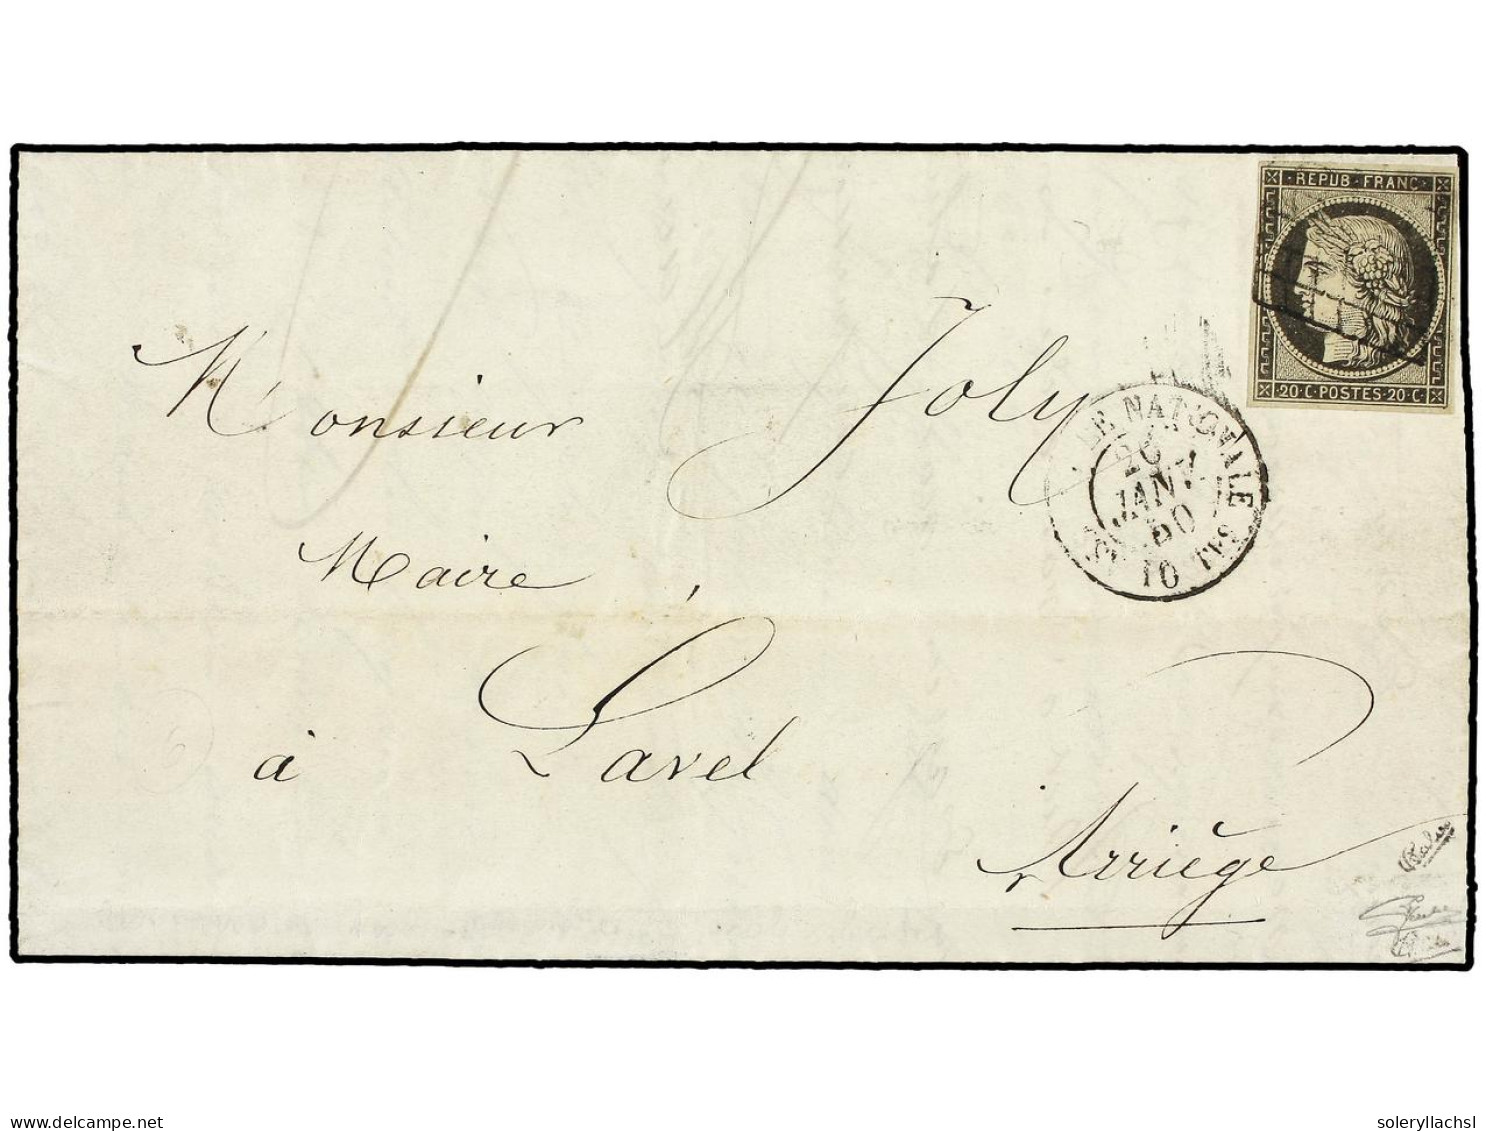 REPUB · FRANC ·
20·C·POSTES·20·C·
Monsieur Joly
LE NATIONALE
JANV.
50
10
Maire,
à Lavel
Arriège
www.delcampe.net
soleryllachsl